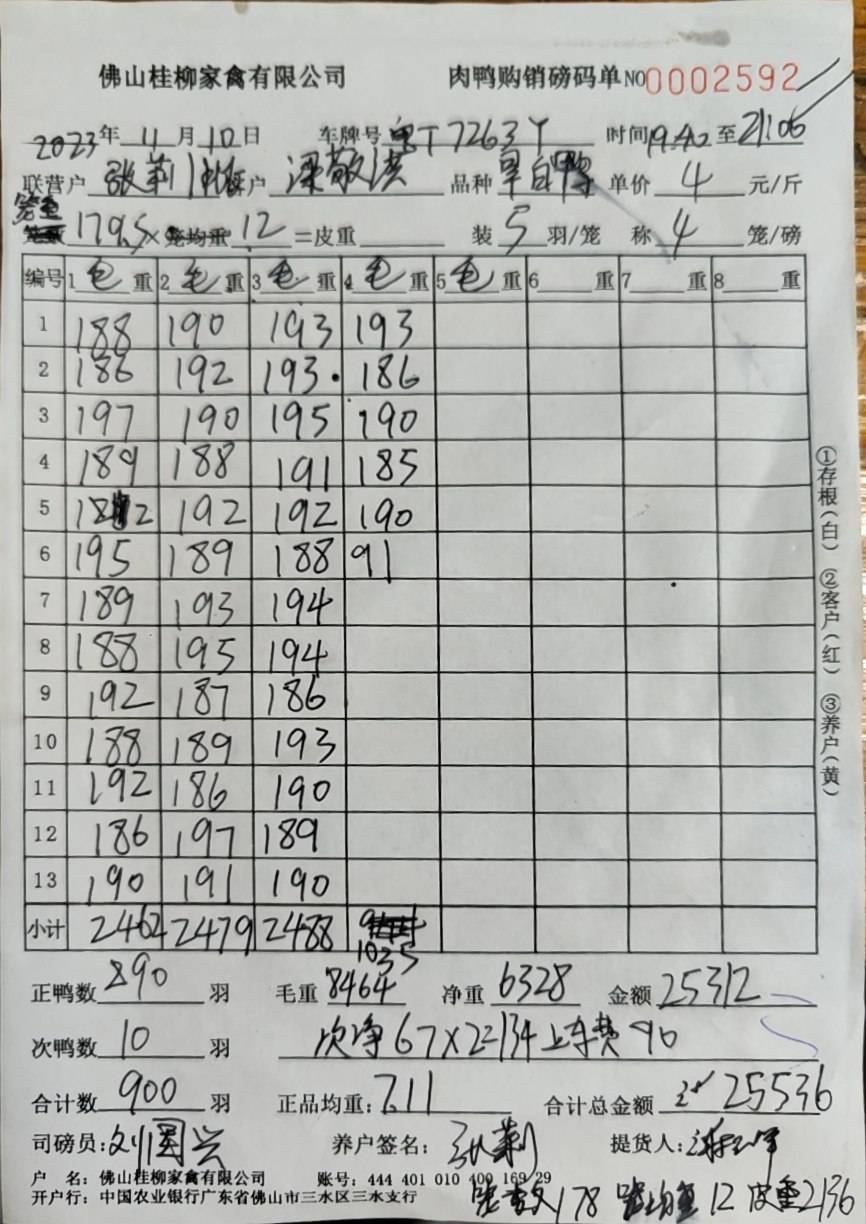 佛山桂柳家禽有限公司 肉鸭购销磅码单 NO 0002592
2023年 11月10日 车牌号 粤T7263Y 时间19:40至21:06
联营户 张莉 户 梁敬洪 品种 单价 4 元/斤
179.5× 笼均重 12 =皮重 装 5 羽/笼 称 4 笼/磅
编号 1 毛 重 2 毛 重 3 毛 重 4 毛 重 5 毛 重 6 重 7 重 8 重
1 188 190 193 193
2 186 192 193 186
3 197 190 195 190
4 189 188 191 185
5 182 192 192 190
6 195 189 188 91
7 189 193 194
8 188 195 194
9 192 187 186
10 188 189 193
11 192 186 190
12 186 197 189
13 190 191 190
小计 2462 2479 2488
1035
正鸭数 890 羽 毛重 8464 净重 6328 金额 25312
次鸭数 10 羽 次净67×2=134 上车费 90
合计数 900 羽 正品均重: 7.11 合计总金额 25536
司磅员: 刘国兴 养户签名: 张莉 提货人:
户 名: 佛山桂柳家禽有限公司 账号: 444 401 010 400 169 29
开户行: 中国农业银行广东省佛山市三水区三水支行
笼数178 笼均重12 皮重2136
①存根(白) ②客户(红) ③养户(黄)